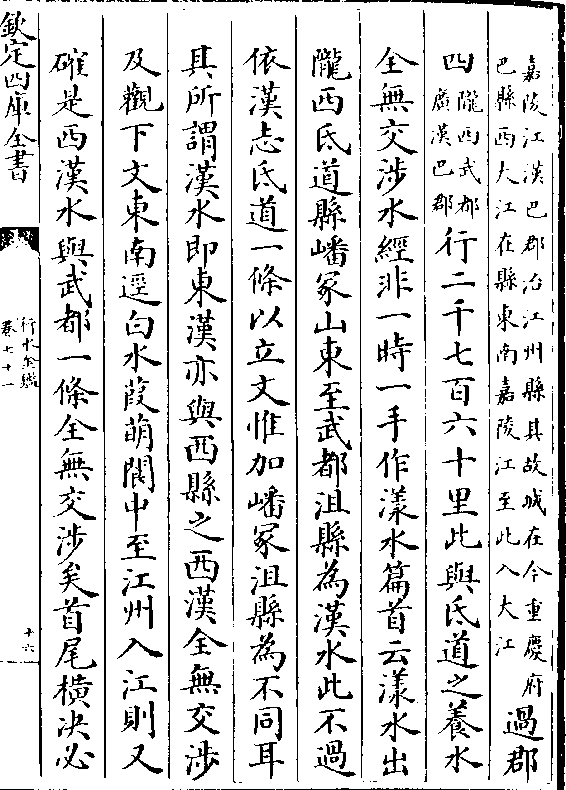 嘉陵江漢巴郡治江州縣其故城在今重慶府
巴縣西大江在縣東南嘉陵江至此入大江
過郡
四
隴西武都
廣漢巴郡
行二千七百六十里此與氐道之養水
全無交渉水經非一時一手作漾水篇首云漾水出
隴西氐道縣嶓冢山東至武都沮縣為漢水此不過
依漢志氐道一條以立文惟加嶓冢沮縣為不同耳
其所謂漢水即東漢亦與西縣之西漢全無交渉
及觀下文東南逕白水葭萌閬中至江州入江則又
確是西漢水與武都一條全無交渉矣首尾橫决必
欽定四庫全書
行水金鑑
卷七十一
十六